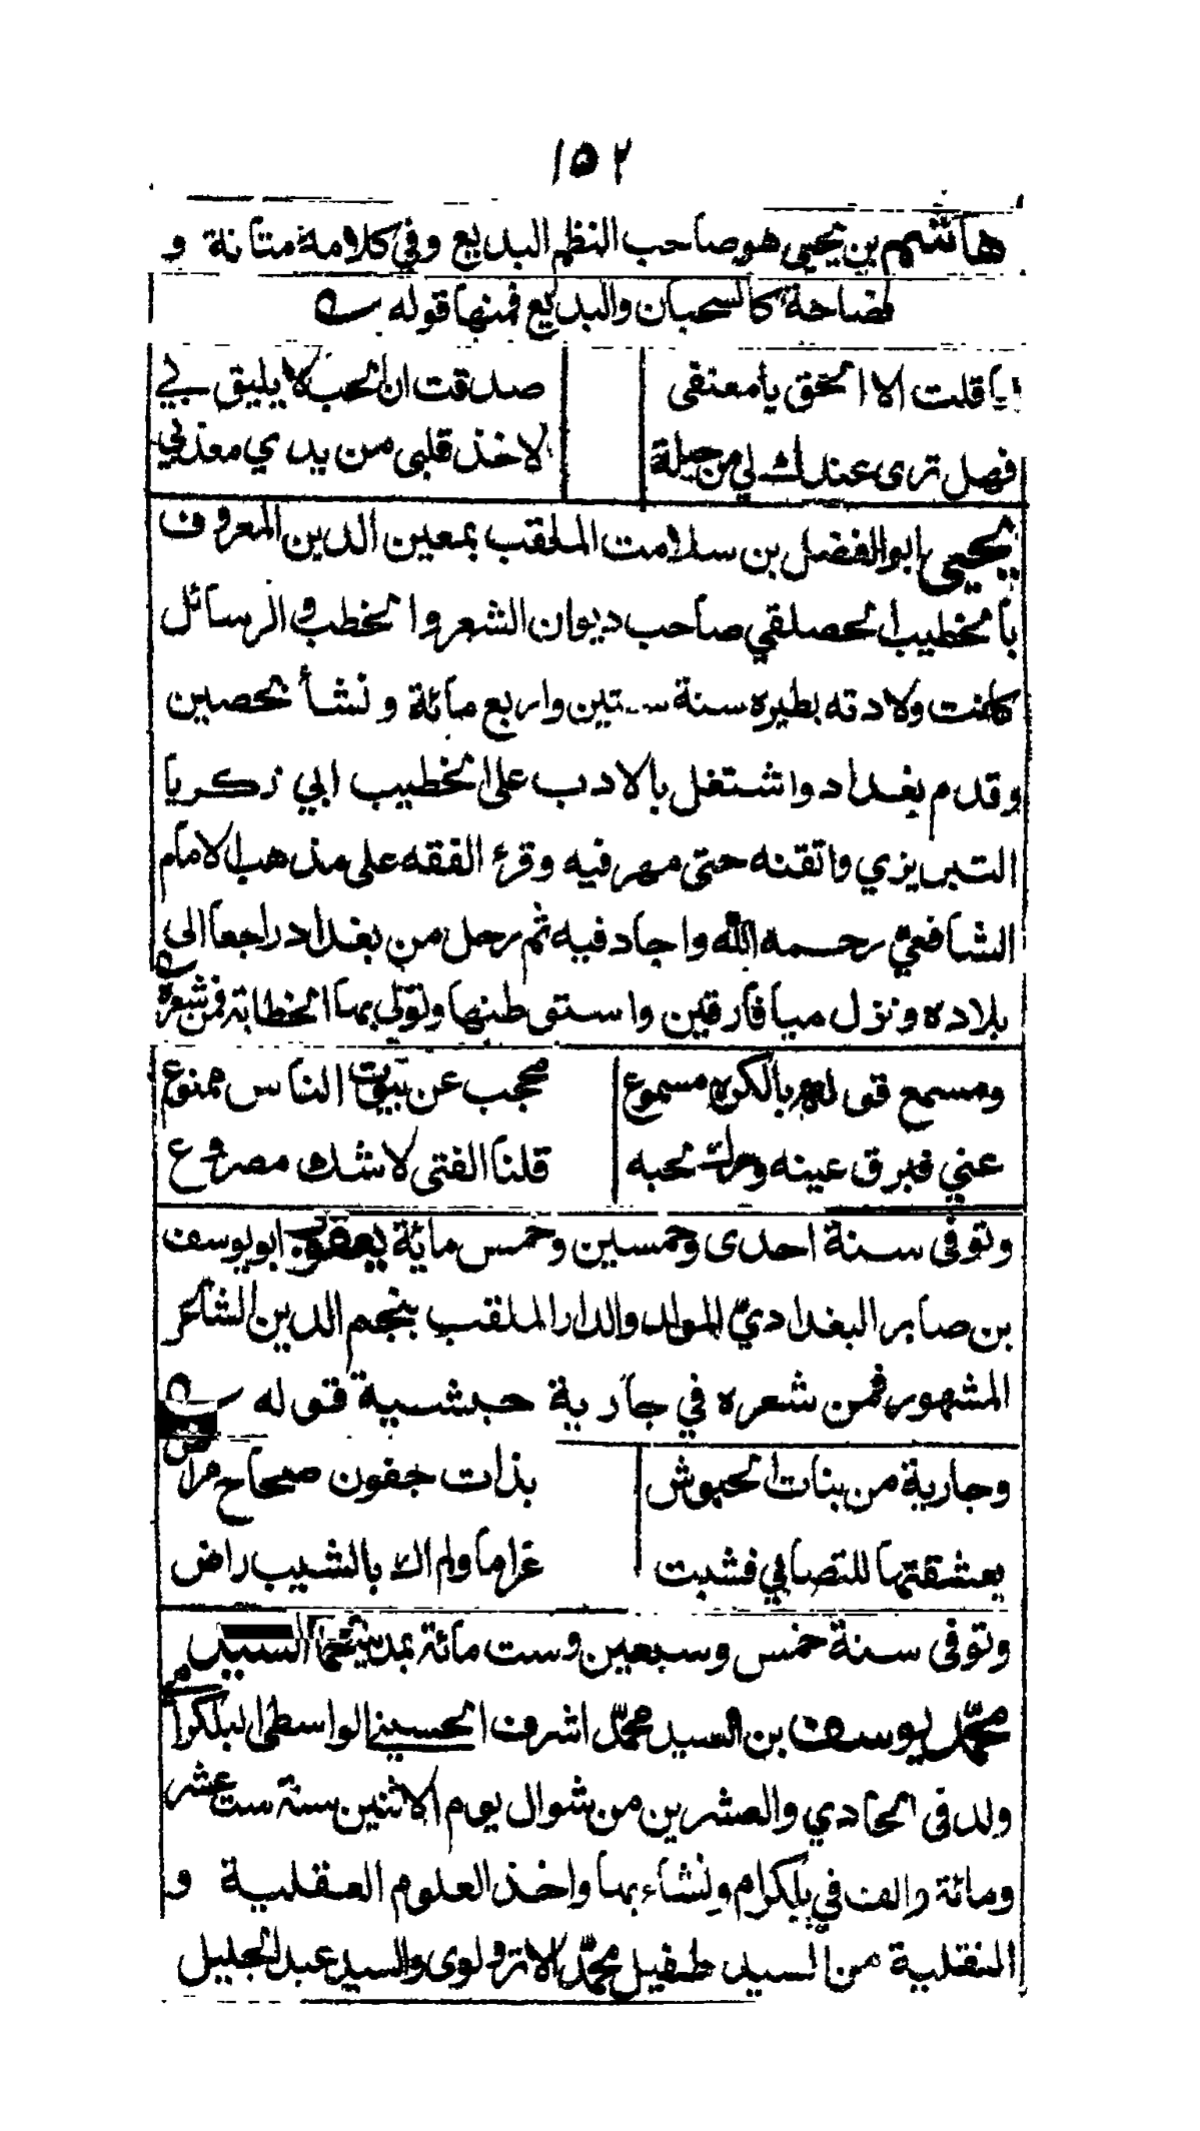 ١٥٢
هاشم بن يحيى هو صاحب النظم البديع وفي كلامه متانة و
فصاحة كالسحبان والبديع فمنها قوله
قلت الا الحق يا معنقى صدقت ان الحب لا يليق بي
فهل ترى عندك لي من حيلة لاخذ قلبى من يدي معذبي
يحيى ابو الفضل بن سلامت الملقب بمعين الدين المعروف
بالخطيب الحصلقي صاحب ديوان الشعر والخطب والرسائل
كانت ولادته بطيره سنة ستين واربع مائة ونشأ بحصين
وقدم بغداد واشتغل بالادب على الخطيب ابي زكريا
التبريزي واتقنه حتى مهر فيه وقرء الفقه على مذهب الامام
الشافعي رحمه الله واجاد فيه ثم رحل من بغداد راجعا الى
بلاده ونزل ميافارقين واستوطنها وتولى بها الخطابة فمن شعره
ومسمع قوله بالكره مسموع محجب عن بيوت الناس ممنوع
غني فبرق عينه وحرك لحيه قلنا الفتى لاشك مصروع
وتوفى سنة احدى وخمسين وخمس مائة يعقوب ابو يوسف
بن صابر البغدادي المولد والدار الملقب بنجم الدين الشاعر
المشهور فمن شعره في جارية حبشية قوله
وجارية من بنات الحبوش بذات جفون صحاح مراض
يعشقتها للتصابي فشبت غراما ولم اك بالشيب راض
وتوفى سنة خمس وسبعين وست مائة بمدينتها السيد
محمد يوسف بن السيد محمد اشرف الحسيني الواسطى البلكرامي
ولد فى الحادي والعشرين من شوال يوم الاثنين سنة ست عشر
ومائة والف في بلكرام ونشاء بها واخذ العلوم العقلية و
النقلية من السيد طفيل محمد الاترولوى والسيد عبد الجليل